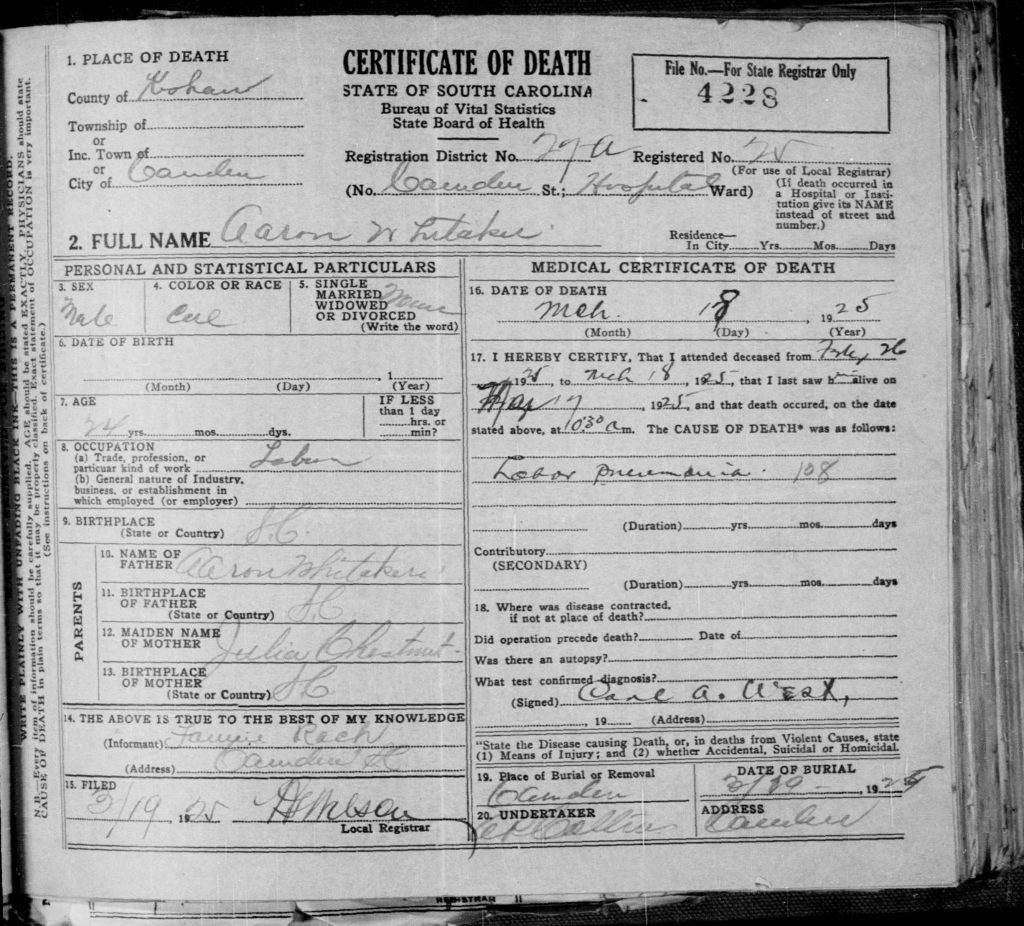 1. PLACE OF DEATH
County of Kershaw
Township of
or
Inc. Town of
or
City of Camden
CERTIFICATE OF DEATH
STATE OF SOUTH CAROLINA
Bureau of Vital Statistics
State Board of Health
File No.—For State Registrar Only
4228
Registration District No. 27 A Registered No. 25
(For use of Local Registrar)
(No. Camden St.; Hospital Ward)
(If death occurred in
a Hospital or Insti-
tution give its NAME
instead of street and
number.)
2. FULL NAME Aaron Whitaker
Residence—
In City Yrs. Mos. Days
PERSONAL AND STATISTICAL PARTICULARS
3. SEX
Male
4. COLOR OR RACE
Col
5. SINGLE
MARRIED
WIDOWED
OR DIVORCED
(Write the word)
6. DATE OF BIRTH
, 1
(Month) (Day) (Year)
7. AGE
24 yrs. mos. dys.
IF LESS
than 1 day
hrs. or
min?
8. OCCUPATION
(a) Trade, profession, or
particuar kind of work Labor
(b) General nature of Industry,
business, or establishment in
which employed (or employer)
9. BIRTHPLACE
(State or Country) S.C.
PARENTS
10. NAME OF
FATHER Aaron Whitaker
11. BIRTHPLACE
OF FATHER
(State or Country) S C
12. MAIDEN NAME
OF MOTHER Julia Chestnut
13. BIRTHPLACE
OF MOTHER
(State or Country) S C
14. THE ABOVE IS TRUE TO THE BEST OF MY KNOWLEDGE
(Informant)
(Address) Camden SC
15. FILED
3/19, 1925
Local Registrar
MEDICAL CERTIFICATE OF DEATH
16. DATE OF DEATH
Mch. 18, 1925
(Month) (Day) (Year)
17. I HEREBY CERTIFY, That I attended deceased from Feby 26
1925, to Mch 18, 1925, that I last saw him alive on
Mar 17, 1925, and that death occured, on the date
stated above, at 10:30 a m. The CAUSE OF DEATH* was as follows:
Lobar pneumonia. 108
(Duration) yrs. mos. days
Contributory
(SECONDARY)
(Duration) yrs. mos. days
18. Where was disease contracted,
if not at place of death?
Did operation precede death? Date of
Was there an autopsy?
What test confirmed diagnosis?
(Signed) Carl A. West,
, 19 (Address)
*State the Disease causing Death, or, in deaths from Violent Causes, state
(1) Means of Injury; and (2) whether Accidental, Suicidal or Homicidal.
19. Place of Burial or Removal
Camden
DATE OF BURIAL
3/19 - , 1925
20. UNDERTAKER
Collins
ADDRESS
Camden
WRITE PLAINLY WITH UNFADING BLACK INK—THIS IS A PERMANENT RECORD.
N. B.—Every item of information should be carefully supplied. AGE should be stated EXACTLY. PHYSICIANS should state
CAUSE OF DEATH in plain terms so that it may be properly classified. Exact statement of OCCUPATION is very important.
(See instructions on back of certificate.)
REGISTRAR